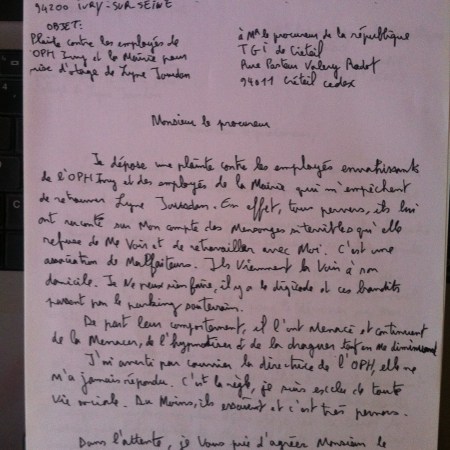 94200 IVRY-SUR-SEINE
OBJET:
Plainte contre les employés de
OPH Ivry et la Mairie pour
prise d'otage de Lyne Jourdan
à Mr le procureur de la république
TGI de Créteil
Rue Pasteur Valery Radot
94011 Créteil cedex
Monsieur le procureur
Je dépose une plainte contre les employés envahissants
de l'OPH Ivry et des employés de la Mairie qui m'empêchent
de retrouver Lyne Jourdan. En effet, tous pervers, ils lui
ont raconté sur Mon compte des Mensonges si terribles qu'elle
refuse de Me Voir et de retravailler avec Moi. C'est une
association de Malfaiteurs. Ils Viennent la Voir à son
domicile. Je Ne peux rien faire, il y a le digicode et ces bandits
passent par le parking souterrain.
De part leur comportement, il l'ont Menacé et continuent
de la Menacer, de l'hypnotiser et de la draguer tout en me
J'ai averti par courrier la directrice de l'OPH, elle ne
m'a jamais répondu. C'est la règle, je suis exclu de toute
Vie sociale. Du Moins, ils essaient et c'est très pervers.
Dans l'attente, je Vous prie d'agréer Monsieur le